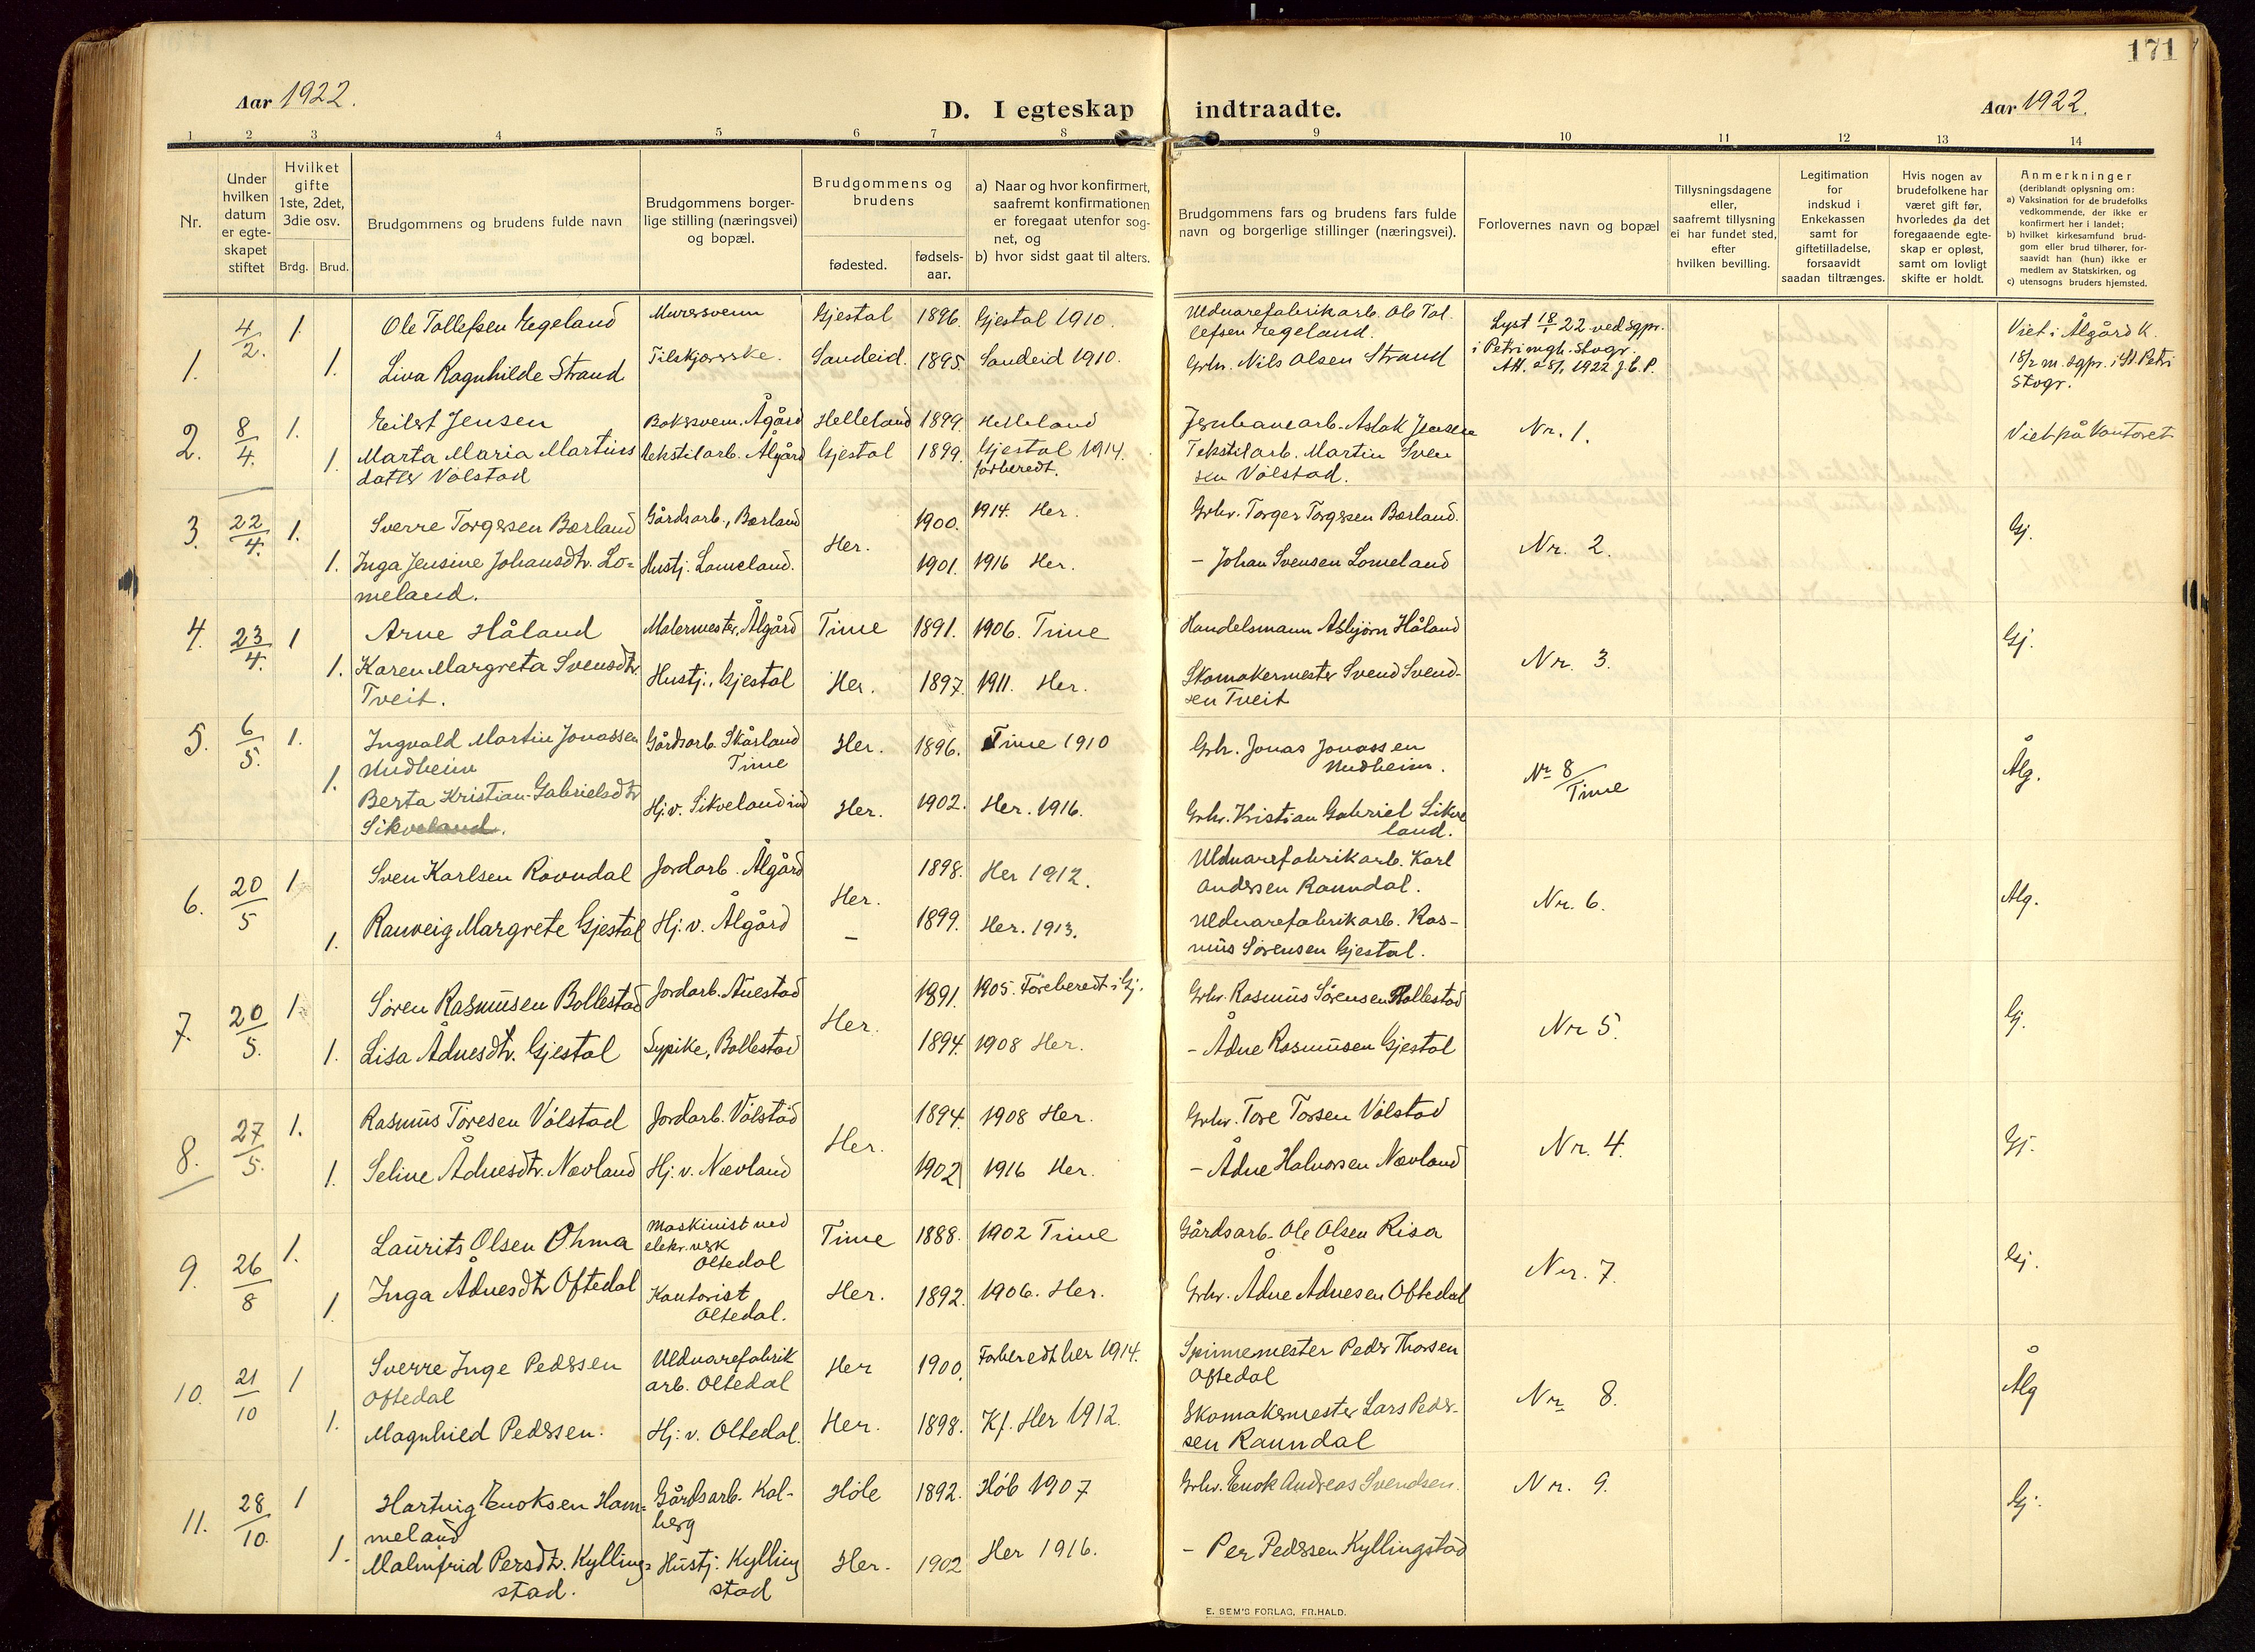 171
Aar 1922.
D. I egteskap indtraadte.
Aar 1922.
1 2 3 4 5 6 7 8 9 10 11 12 13 14
Nr.
Under hvilken datum er egte-skapet stiftet
Hvilket gifte 1ste, 2det, 3die osv.
Brdg. Brud.
Brudgommens og brudens fulde navn
Brudgommens borger-lige stilling (næringsvei) og bopæl.
Brudgommens og brudens
fødested.
fødsels-aar.
a) Naar og hvor konfirmert, saafremt konfirmationen er foregaat utenfor sog-net, og
b) hvor sidst gaat til alters.
Brudgommens fars og brudens fars fulde navn og borgerlige stillinger (næringsvei).
Forlovernes navn og bopæl
Tillysningsdagene eller, saafremt tillysning ei har fundet sted, efter hvilken bevilling.
Legitimation for indskud i Enkekassen samt for giftetilladelse, forsaavidt saadan tiltrænges.
Hvis nogen av brudefolkene har været gift før, hvorledes da det foregaaende egte-skap er opløst, samt om lovligt skifte er holdt.
Anmerkninger
(deriblandt oplysning om:
a) Vaksination for de brudefolks vedkommende, der ikke er konfirmert her i landet;
b) hvilket kirkesamfund brud-gom eller brud tilhører, for-saavidt han (hun) ikke er medlem av Statskirken, og
c) utensogns bruders hjemsted.
1. 4/2. 1. Ole Tollefsen Egeland Murersvenn Gjestal 1896. Gjestal 1910. Uldvarefabrikarb. Ole Tol
lefsen Egeland. Lyst 18/1 22 ved sgpr. i Petri mgh. Stvgr. Att. 28/1 1922 Viet i Ålgård K. 18/2 m. sgpr. i St. Petri Stvgr.
1. Liva Ragnhilde Strand Tilskjærske. Sandeid. 1895. Sandeid 1910. Grbr. Nils Olsen Strand
2. 8/4. 1. Eilert Jensen Ålgård Helleland 1899. Helleland Jernbanearb. Aslak Jensen Nr. 1. Viet på kontoret
1. Marta Maria Martins Tekstilarb. Ålgård Gjestal 1899. Gjestal 1914. Tekstilarb. Martin Sven
datter Vølstad forberedt. sen Vølstad.
3. 22/4. 1. Sverre Torgersen Bærland Gårdsarb., Bærland Her. 1900. 1914. Her. Grbr. Torger Torgersen Bærland. Nr. 2. Gj.
1. Inga Jensine Johansdtr. Lo= Hustj. Lomeland. 1901. 1916 Her. - Johan Svensen Lomeland
meland.
4. 23/4. 1 Arne Håland Malermester, Ålgård Time 1891. 1906. Time Handelsmann Asbjørn Håland Nr. 3. Gj.
1. Karen Margreta Svensdtr. Hustj., Gjestal Her. 1897. 1911. Her. Skomakermester Svend Svend-
Tveit. sen Tveit
5. 6/5. 1. Ingvald Martin Jonassen Gårdsarb. Skårland Her. 1896. Time 1910 Grbr. Jonas Jonassen Nr 8/Time Ålg.
Undheim Time Undheim.
1. Berta Kristian-Gabrielsdtr Hj. v. Sikveland Her. 1902. Her. 1916. Grbr. Kristian Gabriel Sikve
Sikveland. land.
6. 20/5 1. Sven Karlsen Ravndal Jordarb. Ålgård Her. 1898. Her 1912. Uldvarefabrikarb. Karl Nr. 6. Ålg.
Andersen Raundal.
1. Rannveig Margrete Gjestal Hj. v. Ålgård - 1899. Her. 1913. Uldvarefabrikarb. Ras-
mus Sørensen Gjestal.
7. 20/5. 1. Søren Rasmussen Bollestad Jordarb. Auestad Her. 1891. 1905. Forberedt i Gj. Grbr. Rasmus Sørensen Bollestad Nr 5. Gj.
1. Lisa Ådnesdtr. Gjestal Sypike, Bollestad 1894. 1908 Her. - Ådne Rasmussen Gjestal
8. 27/5. 1. Rasmus Toresen Vølstad Jordarb. Vølstad Her. 1894. 1908 Her. Grbr. Tore Torsen Vølstad Nr. 4. Gj.
1. Seline Ådnesdtr. Nævland Hj. v. Nævland 1902 1916 Her. - Ådne Halvorsen Nævland
9. 26/8 1. Laurits Olsen Ohma Maskinist ved Time 1888. 1902 Time Gårdsarb. Ole Olsen Risa Nr. 7. Gj.
elekr. verk
Oltedal
1. Inga Ådnesdtr Oftedal Kontorist Her. 1892. 1906. Her. Grbr. Ådne Ådnesen Oftedal
Oltedal.
10. 21/10 1 Sverre Inge Pedersen Uldvarefabrik Her 1900. Forberedt her 1914. Spinnemester Peder Thorsen Nr 8. Ålg
Oftedal arb. Oltedal Oftedal
1. Magnhild Pedersen. Hj. v. Oltedal. Her. 1898. Kf. Her 1912. Skomakermester Lars Peder-
sen Raundal
11. 28/10. 1 Hartvig Enoksen Ham= Gårdsarb. Kal- Høle 1892. Høle 1907 Grbr. Enok Andreas Svendsen. Nr. 9. Gj.
meland berg
1. Malmfrid Persdtr. Kylling= Hustj. Kylling Her. 1902 Her 1916. - Per Pedersen Kyllingstad
stad. stad
E. SEM'S FORLAG, FR.HALD.